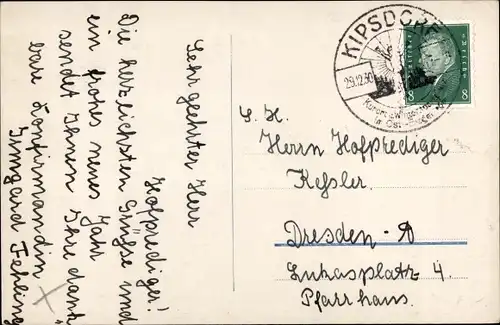 Sehr geehrter Herr
Hofprediger!
Die herzlichsten Grüße und
ein frohes neues Jahr
sendet Ihnen Ihre dank-
bare Konfirmandin
Irmgard Fehling
KIPSDORF
29.12.30
Deutsches Reich
8 8
S. H.
Herrn Hofprediger
Keßler.
Dresden-A
Lukasplatz 4.
Pfarrhaus.